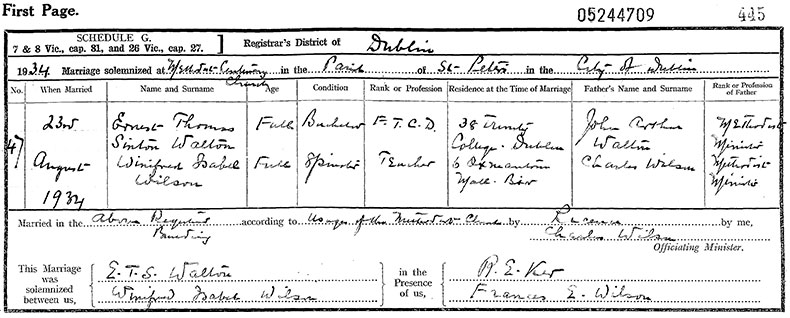 First Page.
05244709 445
SCHEDULE G.
7 & 8 Vic., cap. 81, and 26 Vic., cap. 27.
Registrar's District of Dublin
1934 Marriage solemnized at Methodist Centenary Church in the Parish of St. Peter in the City of Dublin
No. When Married Name and Surname Age Condition Rank or Profession Residence at the Time of Marriage Father's Name and Surname Rank or Profession of Father
47 23rd August 1934
Ernest Thomas Sinton Walton Full Bachelor F.T.C.D. 38 Trinity College Dublin John Arthur Walton Methodist Minister
Winifred Isabel Wilson Full Spinster Teacher 6 Oxmantown Mall Birr Charles Wilson Methodist Minister
Married in the above Registered Building according to Usages of the Methodist Church by Licence by me,
Charles Wilson
Officiating Minister.
This Marriage was solemnized between us, E.T.S. Walton
Winifred Isabel Wilson
in the Presence of us, R. E. Ker
Frances E. Wilson